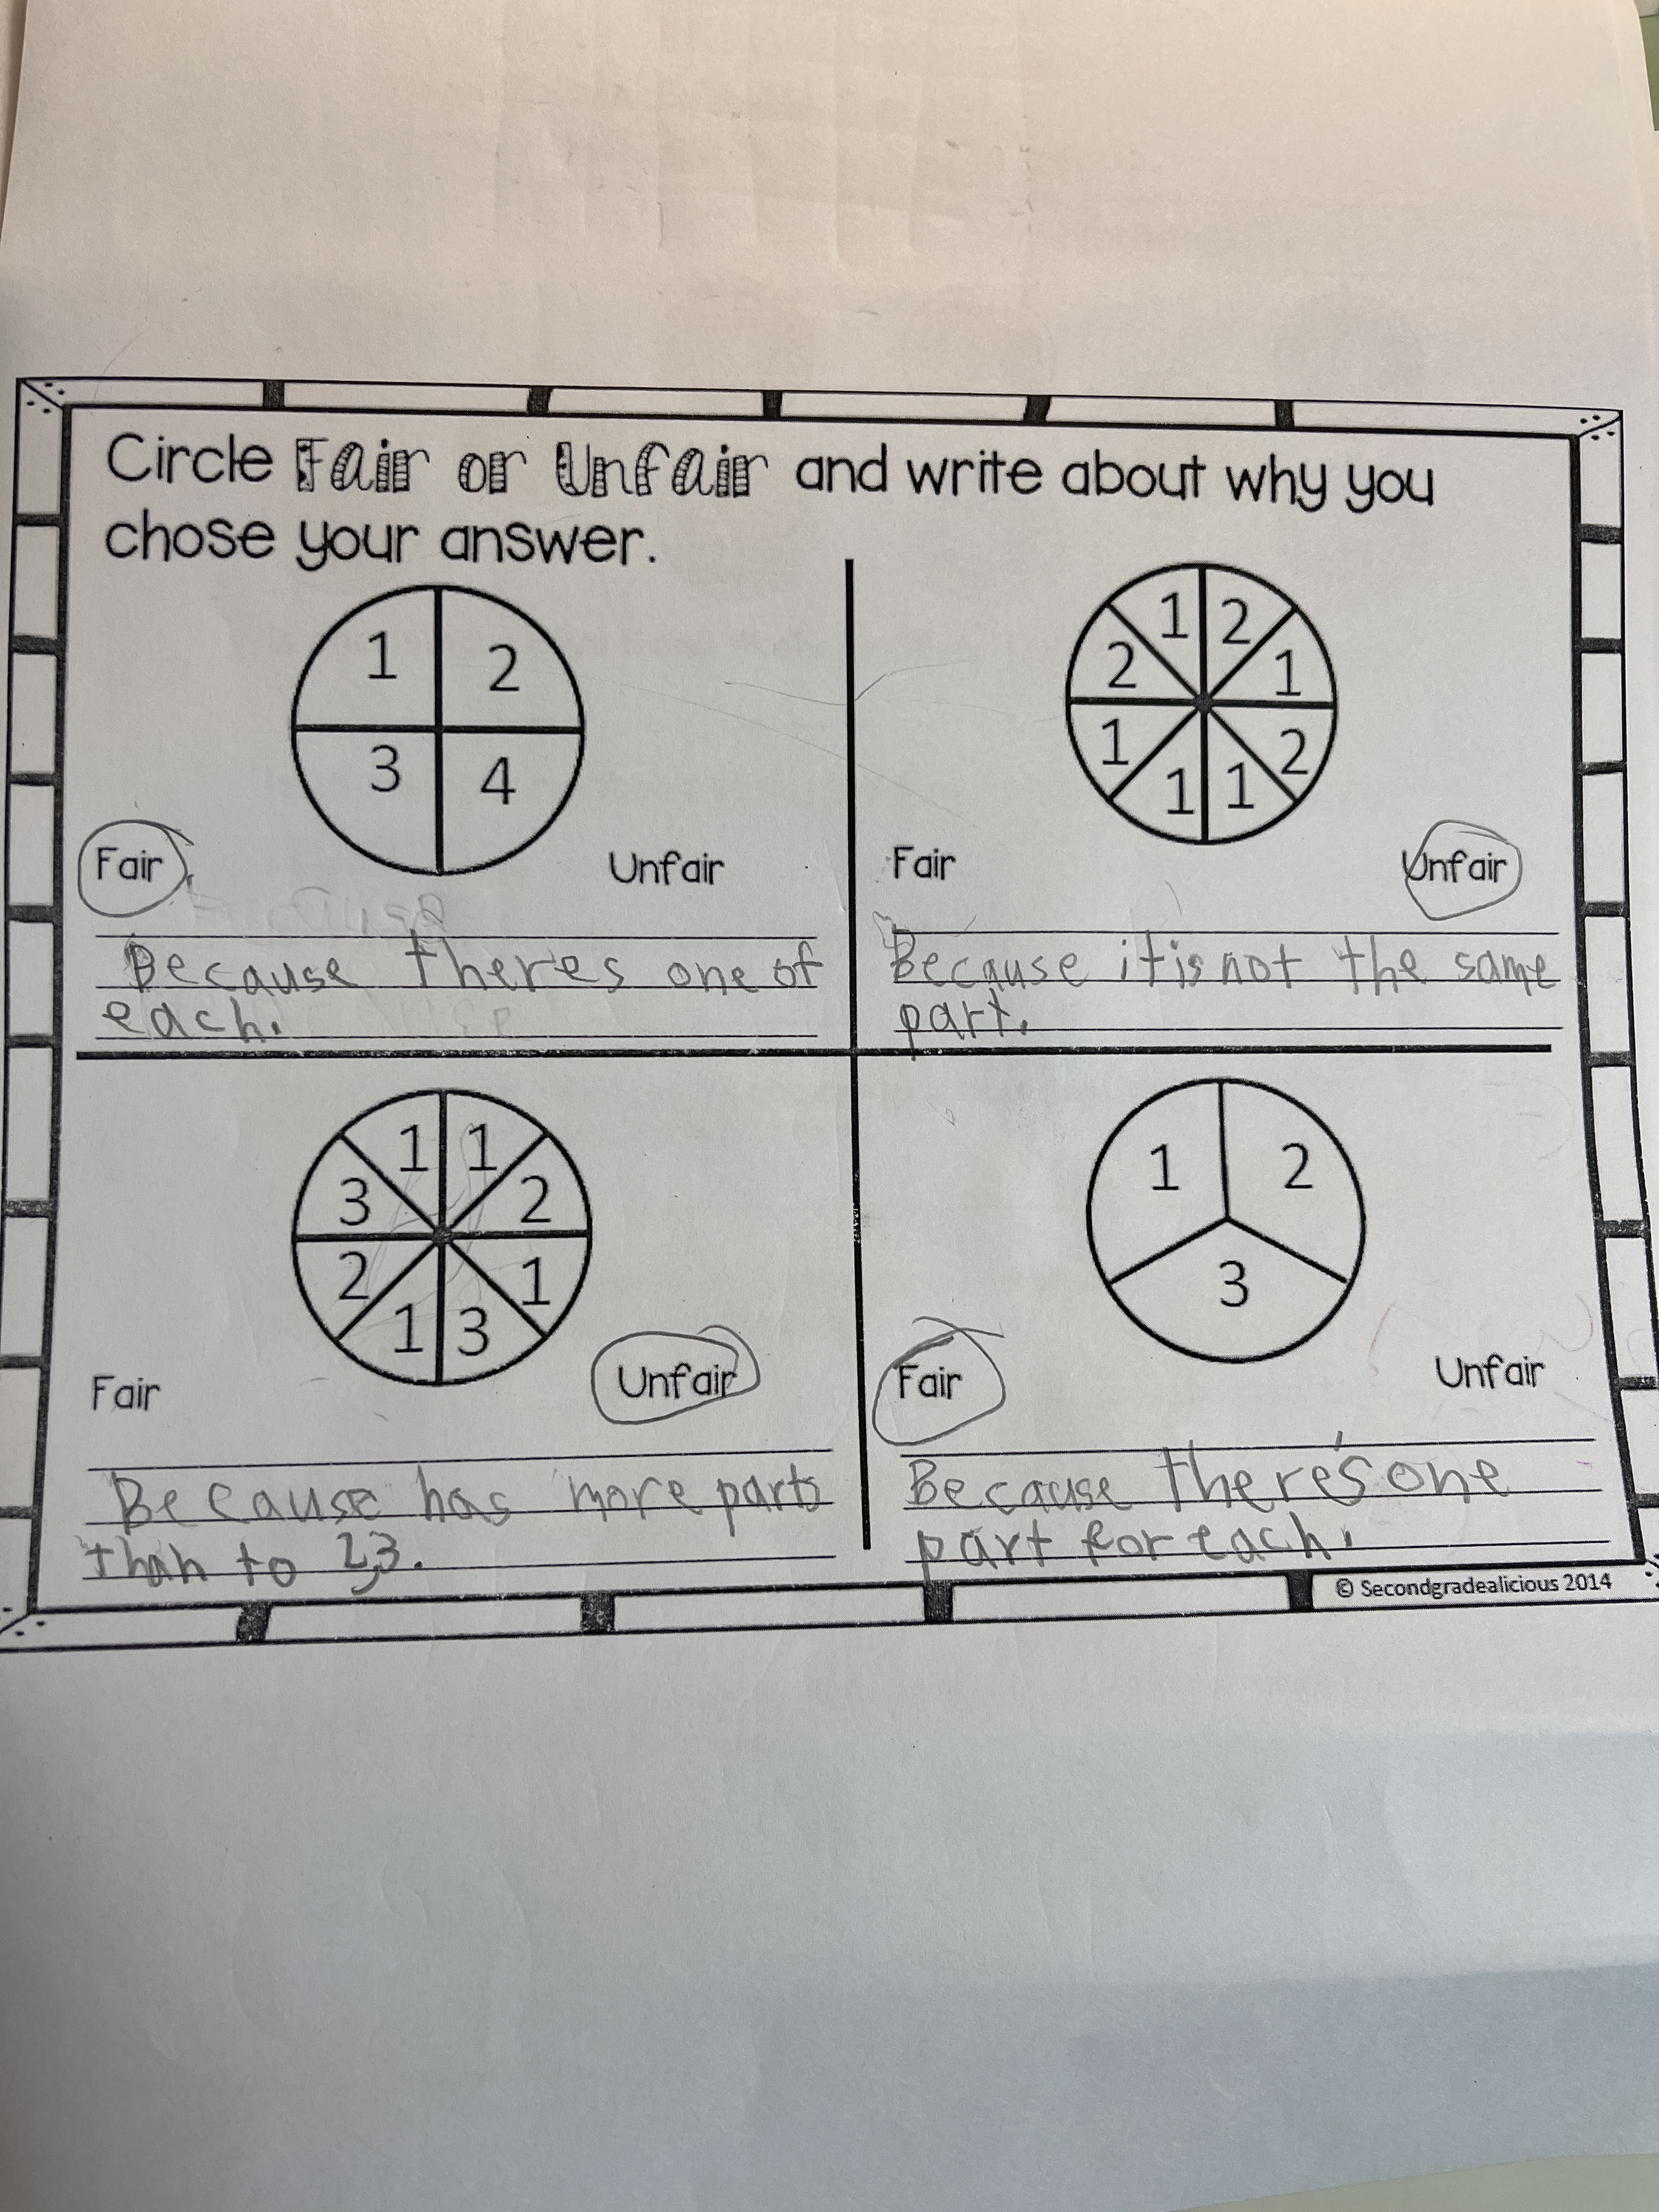 Circle Fair or Unfair and write about why you
chose your answer.
1 2
3 4
Fair Unfair
Because theres one of
each.
1 2
2 1
1 2
1 1
Fair Unfair
Because it is not the same
part.
1 1
3 2
2 1
1 3
Fair Unfair
Because has more parts
than to 2,3.
1 2
3
Fair Unfair
Because there's one
part for each.
© Secondgradealicious 2014